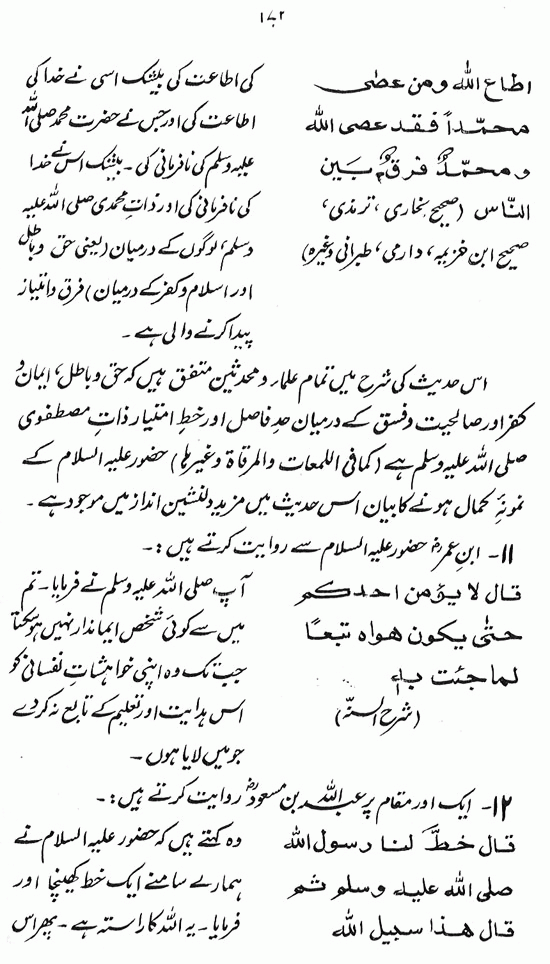 اطاع الله ومن عصٰی
محمّداً فقد عصی الله
و محمّدٌ فرقٌ بین
النّاس (صحیح بخاری، ترمذی،
صحیح ابن خزیمہ، دارمی، طبرانی وغیرہ)
کی اطاعت کی بیشک اسی نے خدا کی
اطاعت کی اور جس نے حضرت محمد صلی اللہ
علیہ وسلم کی نافرمانی کی۔ بیشک اس نے خدا
کی نافرمانی کی اور ذاتِ محمدی صلی اللہ علیہ
وسلم، لوگوں کے درمیان (یعنی حق و باطل
اور اسلام و کفر کے درمیان) فرق وامتیاز
پیدا کرنے والی ہے۔
اس حدیث کی شرح میں تمام علماء و محدثین متفق ہیں کہ حق و باطل، ایمان و
کفر اور صالحیت و فسق کے درمیان حدِ فاصل اور خطِ امتیاز ذاتِ مصطفوی
صلی اللہ علیہ وسلم ہے (کما فی اللمعات والمرقاۃ وغیرہا) حضور علیہ السلام کے
نمونۂ کمال ہونے کا بیان اس حدیث میں مزید دلنشین انداز میں موجود ہے۔
۱۱۔ ابنِ عمرؓ حضور علیہ السلام سے روایت کرتے ہیں:۔
قال لا یؤمن احدکم
حتّٰی یکون ھواہ تبعًا
لما جئت بہٖ
(شرح السنۃ)
آپ صلی اللہ علیہ وسلم نے فرمایا۔ تم
میں سے کوئی شخص ایماندار نہیں ہو سکتا
جب تک وہ اپنی خواہشاتِ نفسانی کو
اس ہدایت اور تعلیم کے تابع نہ کر دے
جو میں لایا ہوں۔
۱۲۔ ایک اور مقام پر عبد اللہ بن مسعودؓ روایت کرتے ہیں:۔
قال خطَّ لنا رسول الله
صلی الله علیہ وسلم ثم
قال ھذا سبیل الله
وہ کہتے ہیں کہ حضور علیہ السلام نے
ہمارے سامنے ایک خط کھینچا اور
فرمایا۔ یہ اللہ کا راستہ ہے۔ پھر اس